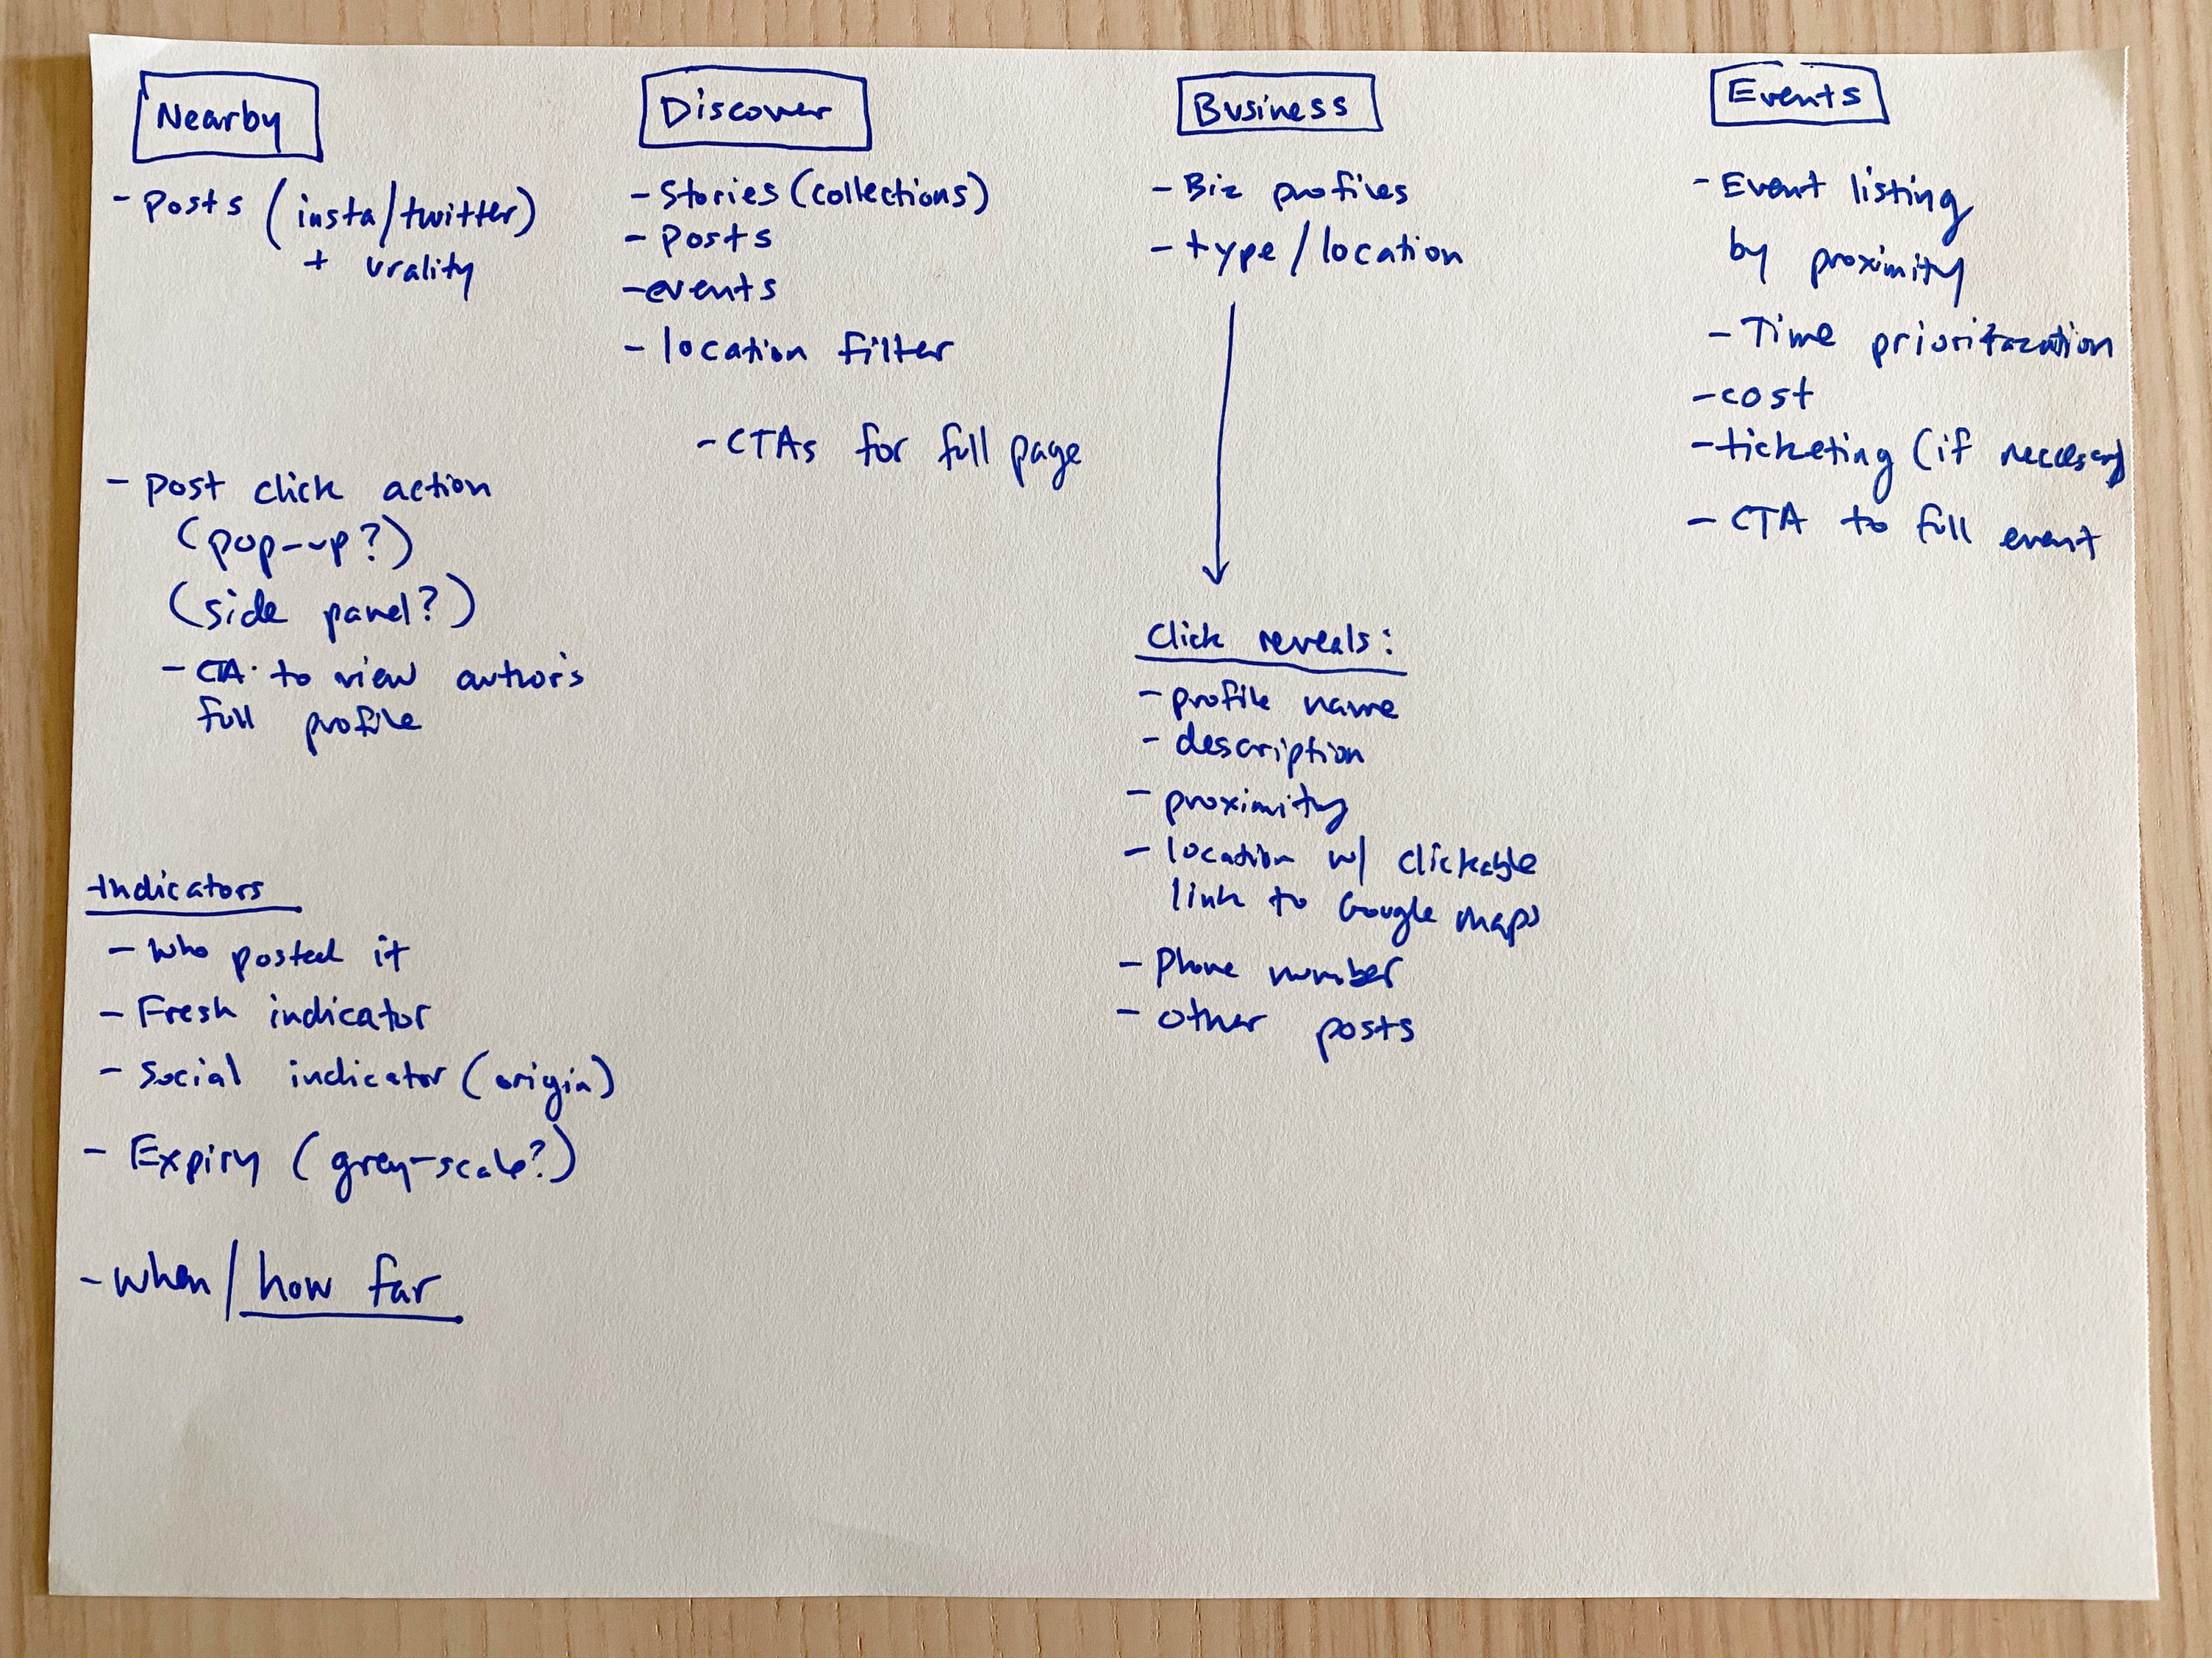 Nearby
- Posts (insta/twitter)
+ vrality
- Post click action
(pop-up?)
(side panel?)
- CTA to view author's
full profile
Indicators
- who posted it
- Fresh indicator
- Social indicator (origin)
- Expiry (grey-scale?)
- when/how far
Discover
- Stories (collections)
- Posts
- events
- location filter
- CTAs for full page
Business
- Biz profiles
- type/location
Click reveals:
- profile name
- description
- proximity
- location w/ clickable
link to Google maps
- Phone number
- other posts
Events
- Event listing
by proximity
- Time prioritazation
- cost
- ticketing (if
- CTA to full event